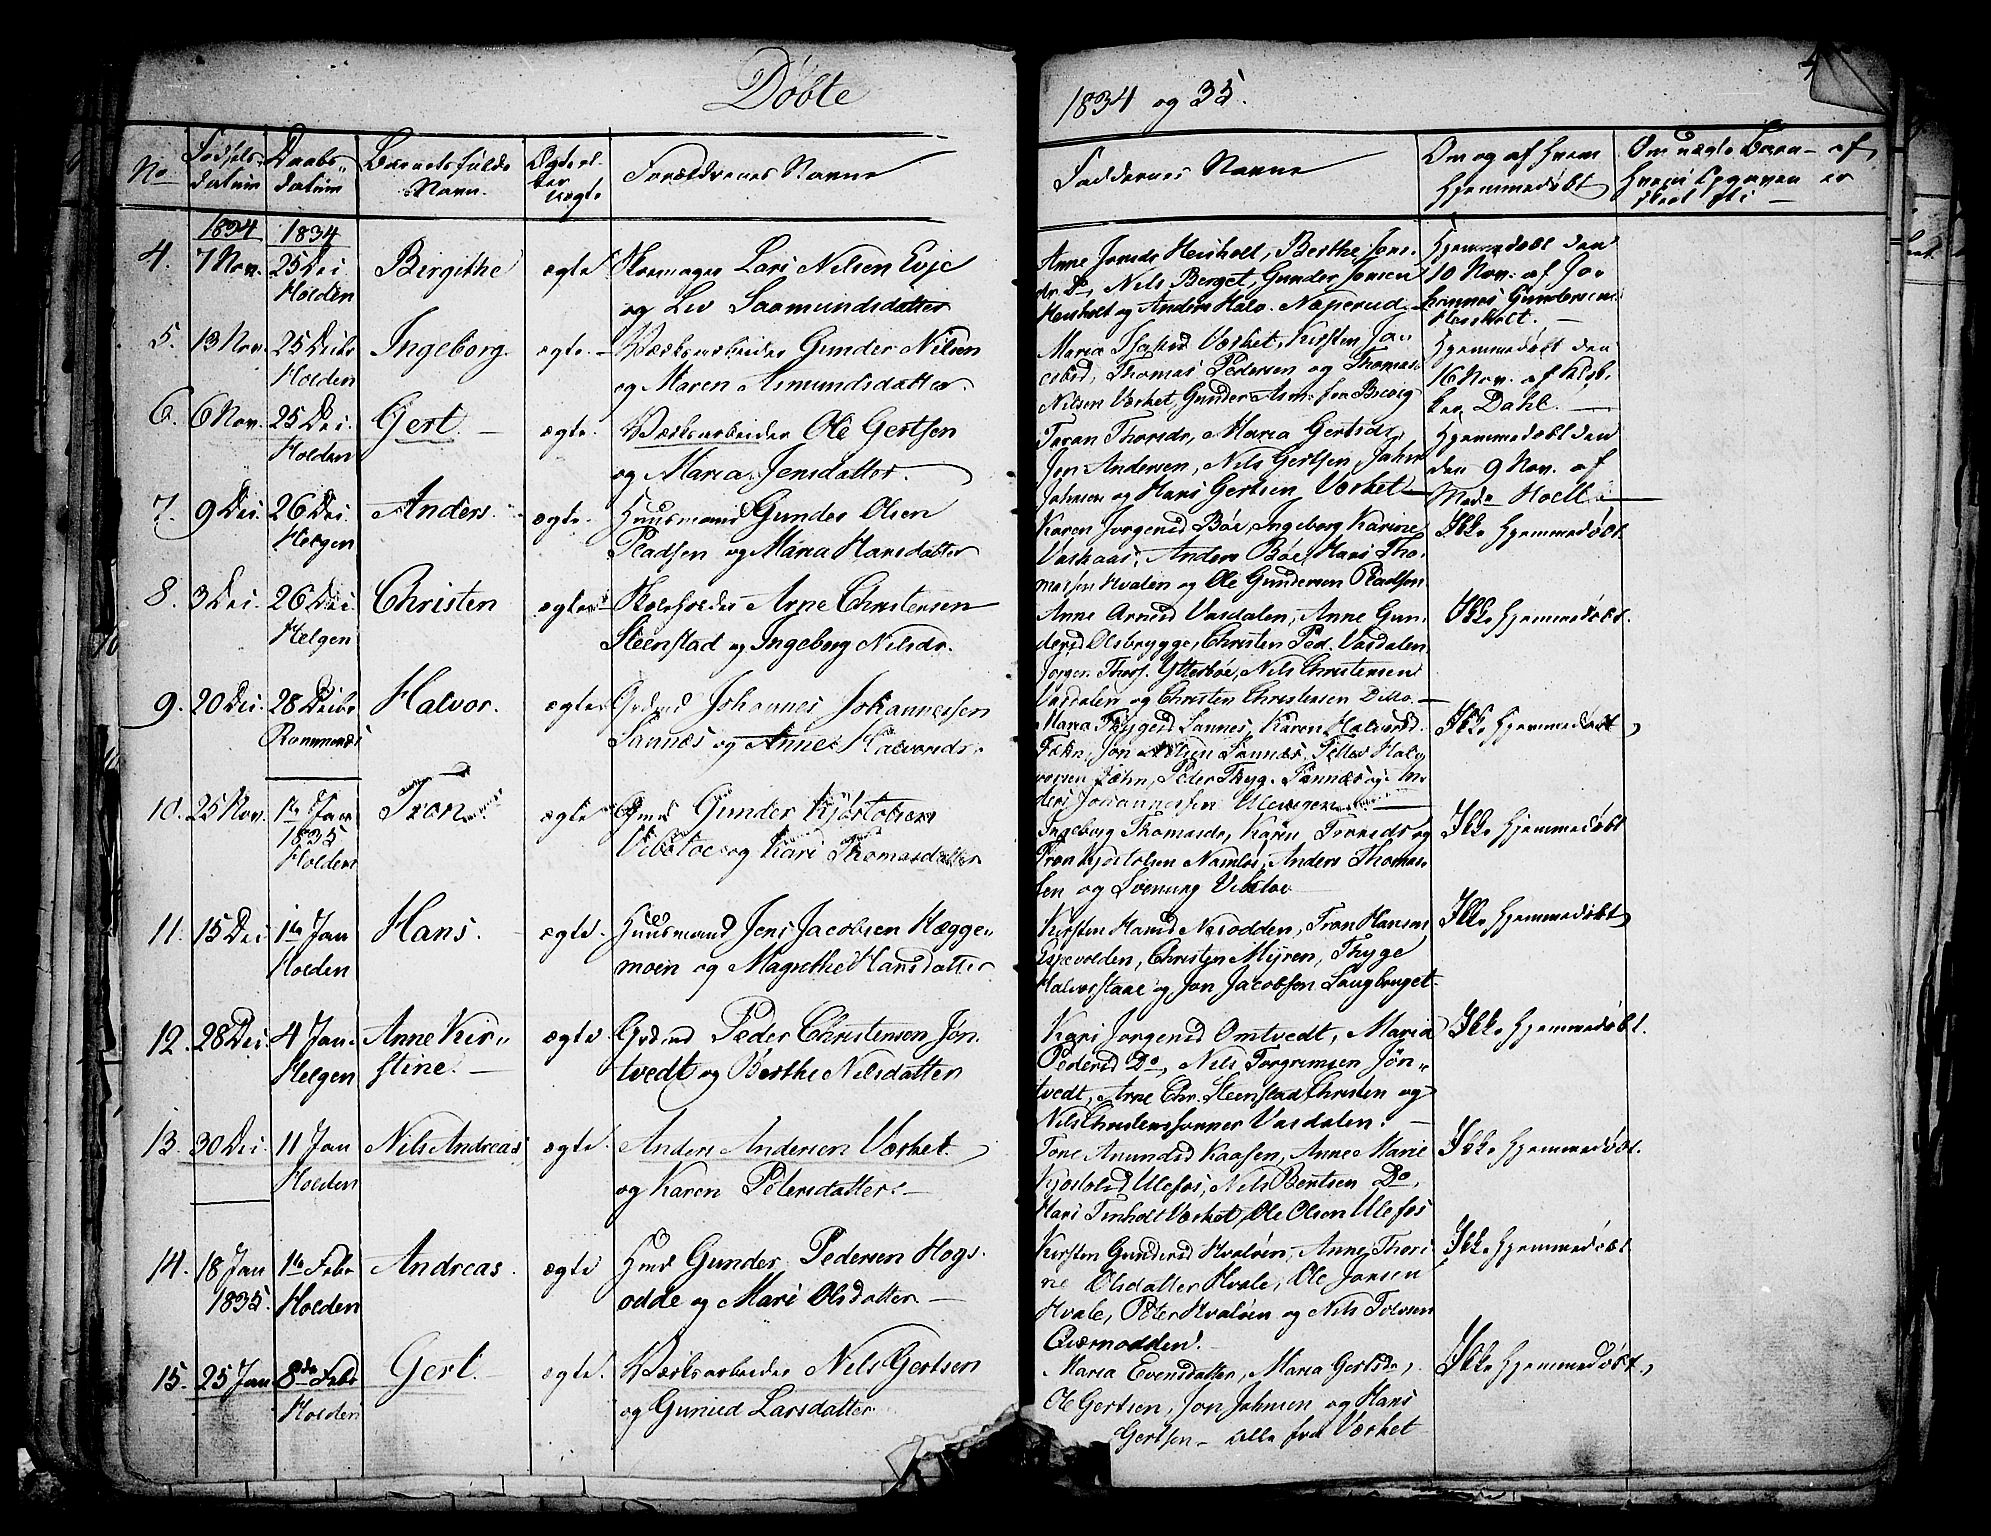 Døbte
1834 og 35.
No
Fødsels-
datum
Daabs-
datum
Barnets fulde
Navn.
Ægte el-
ler
uægte
Forældrenes Navne
Faddernes Navne
Om og af hvem
hjemmedøbt
Om uægte Barn - af
hvem Opgaven er
skeet
1834
1834
4. 7 Nov. 25 Dec. Holden
Birgithe
ægte
Skomager Lars Nilsen Evje
og Liv Saamundsdatter
Anne Jensdr Heisholt, Berthe Jens-
dr. Do, Nils Berget, Gunder Jensen
Heisholt og Anders Halv. Naperud
Hjemmedøbt den
10 Nov. af Jo-
hannes Gundersen
Heisholt.
5. 13 Nov. 25 Decbr Holden
Ingeborg.
ægte.
Værksarbeider Gunder Nilsen
og Maren Asmundsdatter.
Maria Værket, Kirsten Ja-
Thomas Pedersen og Thomas
Nilsen Værket, Gunder Asm. fra Brevig
Hjemmedøbt den
16 Nov. af
Dahl.
6. 6 Nov. 25 Dec. Holden
Gert.
ægte.
Værksarbeider Ole Gertsen
og Maria Jensdatter.
Taran Thorsdr, Maria Gertsdr
Jon Andersen, Nils Gertsen, John
Johnsen og Hans Gertsen Værket
Hjemmedøbt den
den 9 Nov. af
Mad. Hoell.
7. 9 Dec. 26 Dec. Helgen
Anders.
ægte.
Huusmand Gunder Olsen
Pladsen og Maria Hansdatter
Karen Jørgensd Bøe, Ingeborg Karine
Vaskaas, Anders Bøe, Hans Tho-
massen Hvalen og Ole Gundersen Pladsen
Ikke hjemmedøbt.
8. 3 Dec. 26 Dec Helgen
Christen
ægte
Skoleholder Arne Christensen
Steenstad og Ingeborg Nilsdr.
Anne Arnesd Vasdalen, Anne Gun-
dersd Olsbrygge, Christen Ped. Vasdalen
Jørgen Thors. Ytterbøe, Nils Christensen
Vasdalen og Christen Christensen Ditto.
Ikke hjemmedøbt.
9. 20 Dec. 28 Decbr Romnæs
Halvor.
ægte
Grdmd Johannes Johannessen
Sannæs og Anne Halvorsdr.
Maria Thygesd Sannes, Karen Halvorsd
Fæhn, Jon Nilsen Sannæs, Peder Halv-
orsen Fæhn, Peder Thyg. Sannæs og An-
ders Johannessen Ulevigen
Ikke hjemmedøbt,
10. 25 Nov. 1te Jan 1835 Holden
Tron
ægte
Grmd Gunder Kjøstolsen
Vibetoe og Kari Thomasdatter
Ingeborg Thomasdr, Karen Tronsdr og
Tron Kjøstolsen Namløs, Anders Thomas-
sen og Svenung Vibetoe
Ikke hjemmedøbt
11. 15 Dec 1te Jan Holden
Hans.
ægte.
Huusmand Jens Jacobsen Hægge-
moen og Magrethe Hansdatter
Kirsten Hansd Nesodden, Tron Hansen
Espevolden, Christen Myren, Thyge
Halvorstaae og Jon Jacobsen Langbruget.
Ikke hjemmedøbt,
12. 28 Dec. 4 Jan. Helgen
Anne Kir-
stine.
ægte
Grdmd Peder Christensen Jøn-
tvedt og Berthe Nilsdatter
Kari Jørgensd Omtvedt, Maria
Pedersd Do, Nils Torgrimsen Jøn-
tvedt, Arne Chr. Steenstad Christen og
Nils Christenssønner Vasdalen.
Ikke hjemmedøbt.
13. 30 Dec. 11 Jan Holden
Nils Andreas,
ægte.
Anders Andersen Værket.
og Karen Petersdatter.
Tone Amundsd Kaasen, Anne Marie
Kjøstolsd Ulefos, Nils Bentsen Do,
Hans Tinholt Værket, Ole Olsen Ulefos
Ikke hjemmedøbt.
14. 18 Jan 1835. 1te Febr Holden
Andreas.
ægte
Hmd Gunder Pedersen Hogs-
odde og Mari Olsdatter.
Kirsten Gundersd Hvaløen, Anne Thori-
ne Olsdatter Hvale, Ole Jansen
Hvale, Peter Hvaløen og Nils Tolvsen
Qværnodden.
Ikke hjemmedøbt
15. 25 Jan 8de Febr Holden
Gert.
ægte.
Værksarbeider Nils Gertsen
og Gunild Larsdatter
Maria Evensdatter, Maria Gertsdr,
Ole Gertsen, Jon Johnsen og Hans
Gertsen - alle fra Værket
Ikke hjemmedøbt,